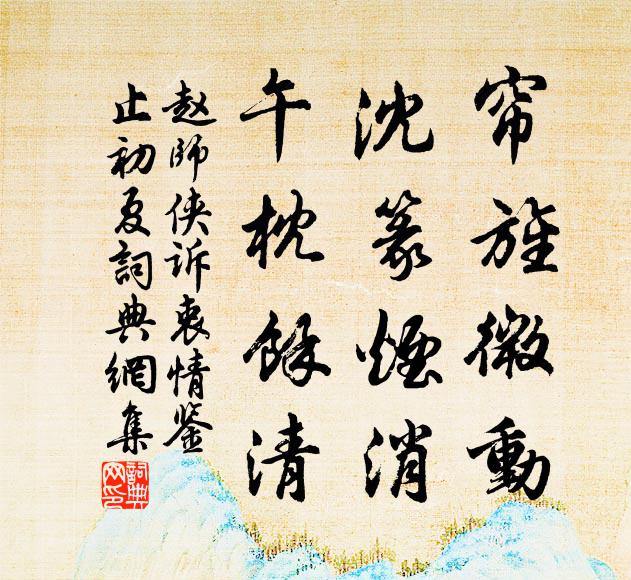 帘旌微動
沈篆煙消
午枕餘清
赵師侠诉衷情鉴
止初夏詞典網集
詞典网印